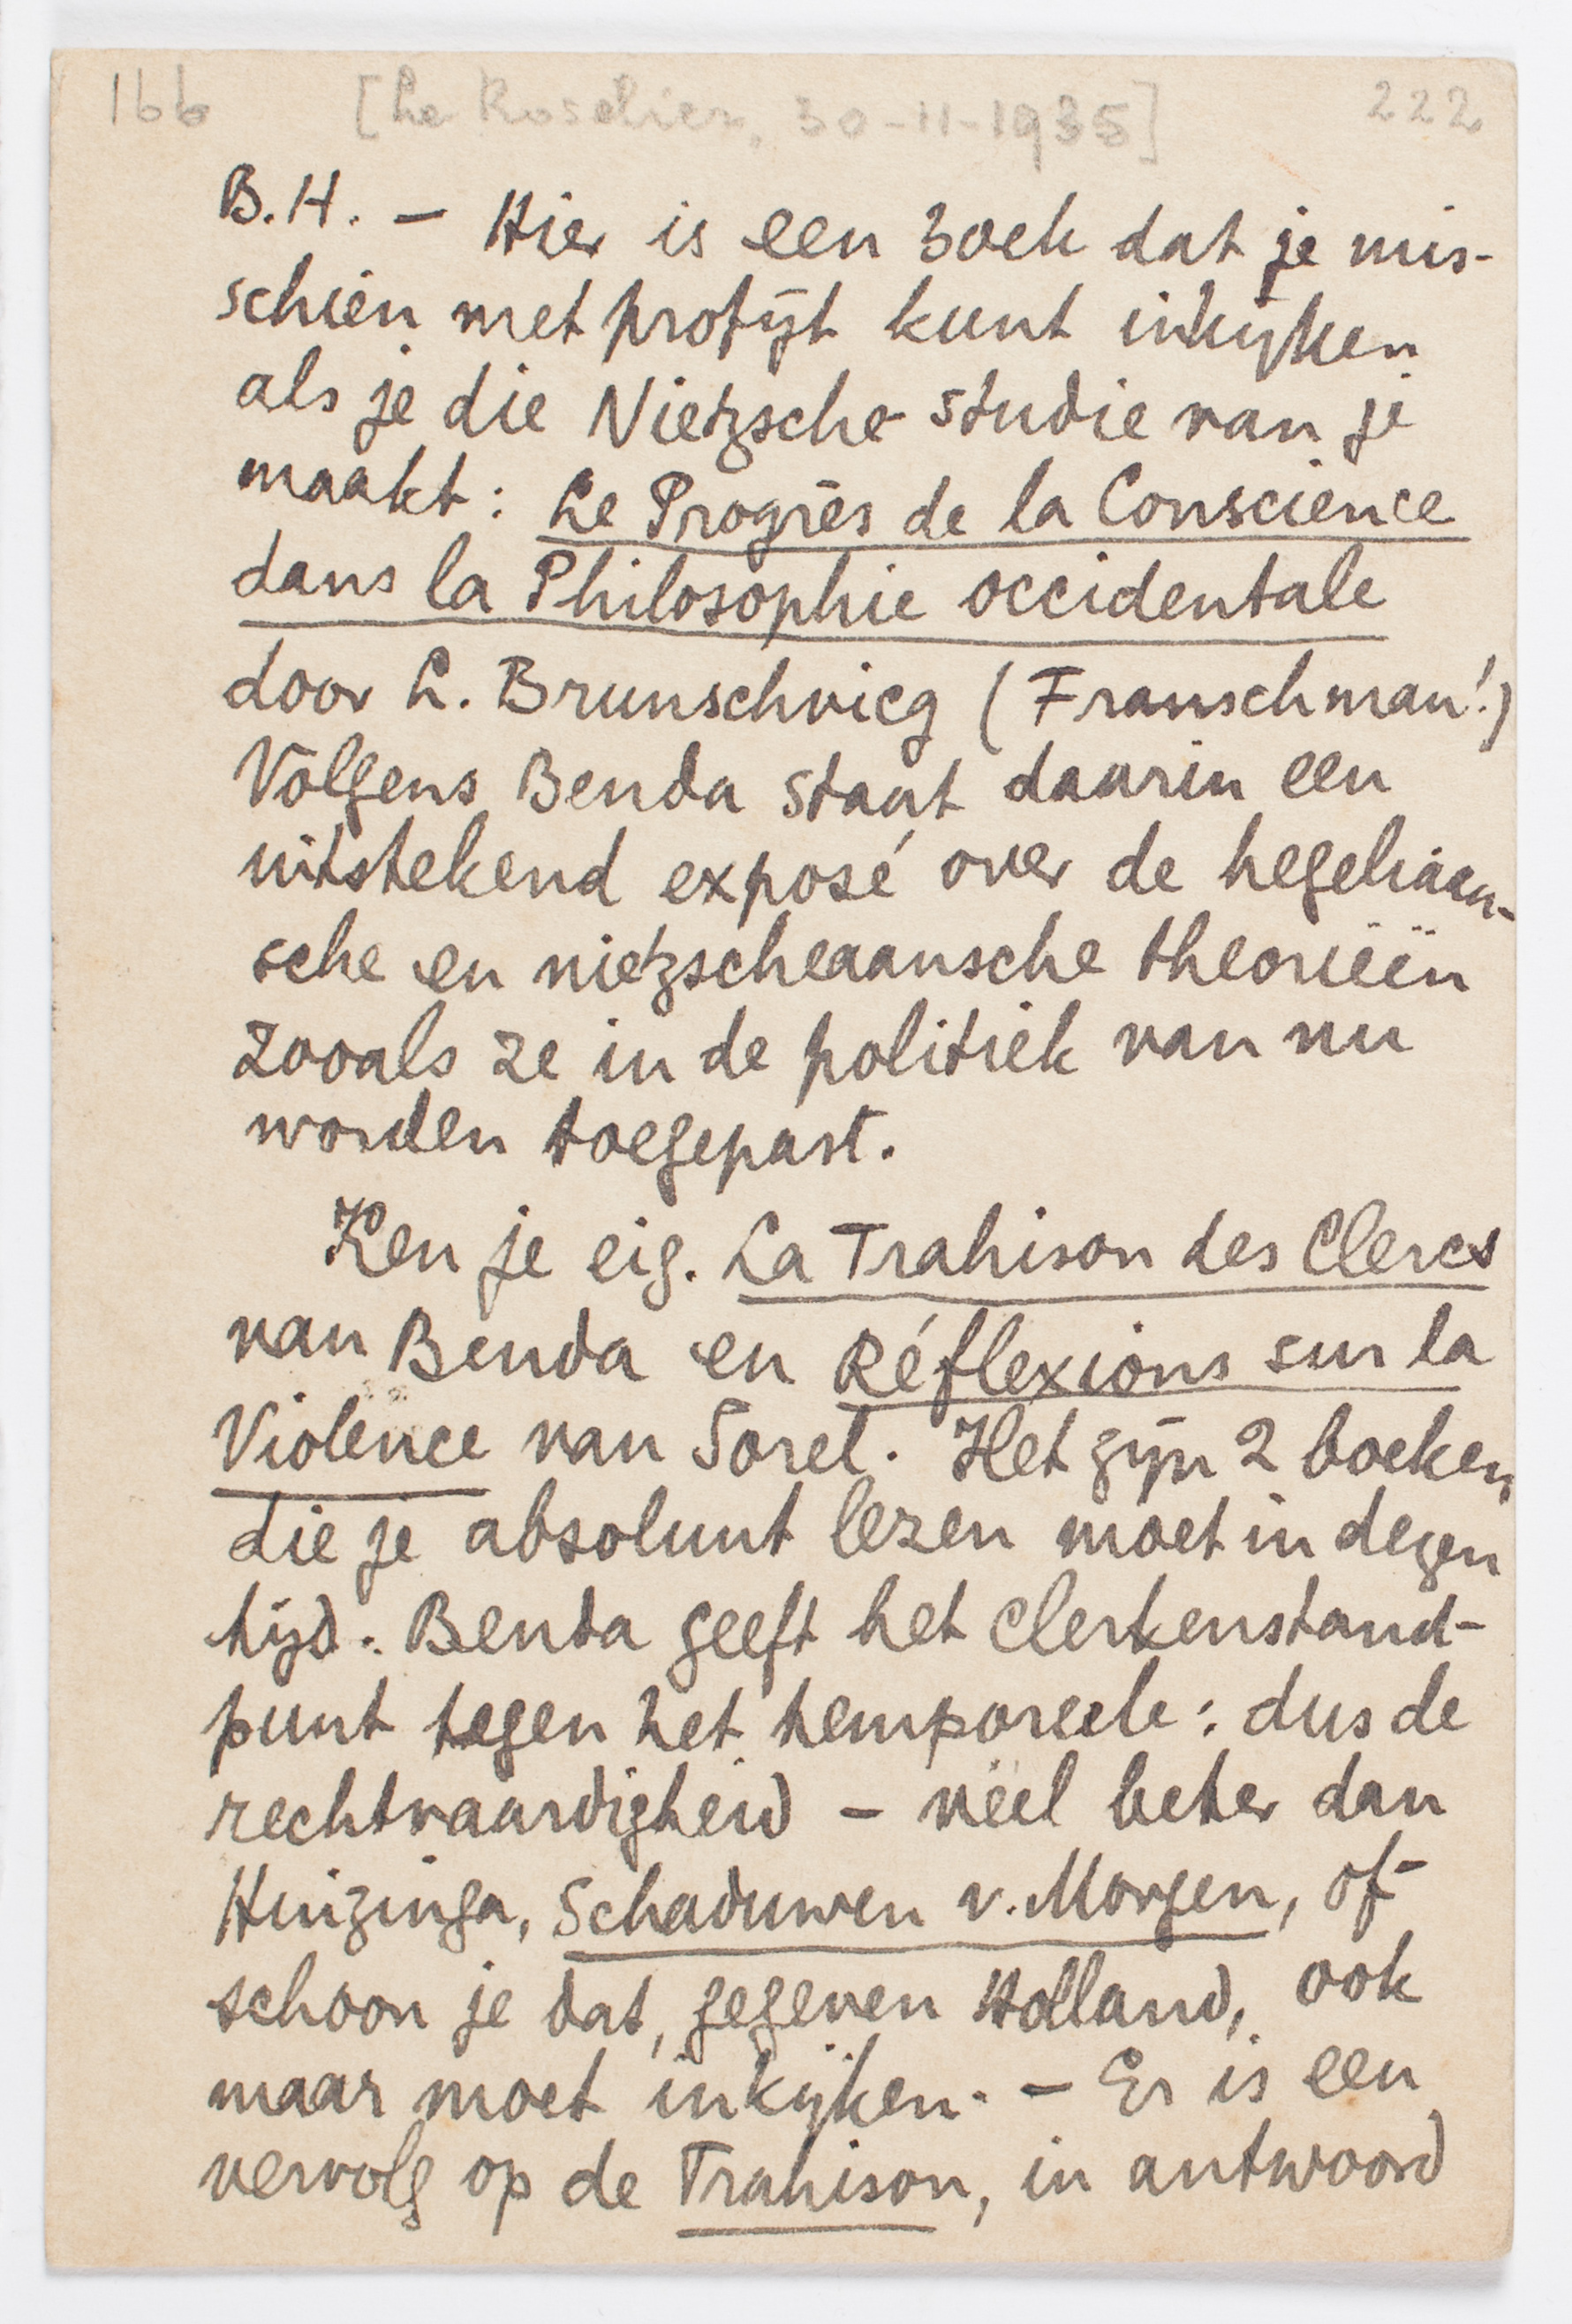 166 [Le Roselier, 30-11-1935] 222
B.H. – Hier is een boek dat je mis-
schien met profijt kunt inkijken
als je die Nietzsche-studie van je
maakt: Le Progrès de la Conscience
dans la Philosophie occidentale
door L. Brunschvicg (Franschman!)
Volgens Benda staat daarin een
uitstekend exposé over de hegeliaan-
sche en nietzscheaansche theorieën
zooals ze in de politiek van nu
worden toegepast.
Ken je eig. La Trahison des Clercs
van Benda en Réflexions sur la
Violence van Sorel. Het zijn 2 boeken
die je absoluut lezen moet in dezen
tijd. Benda geeft het clerkenstand-
punt tegen het temporeele: dus de
rechtvaardigheid – véél beter dan
Huizinga, Schaduwen v. Morgen, of-
schoon je dat, gegeven Holland, ook
maar moet inkijken. – Er is een
vervolg op de Trahison, in antwoord